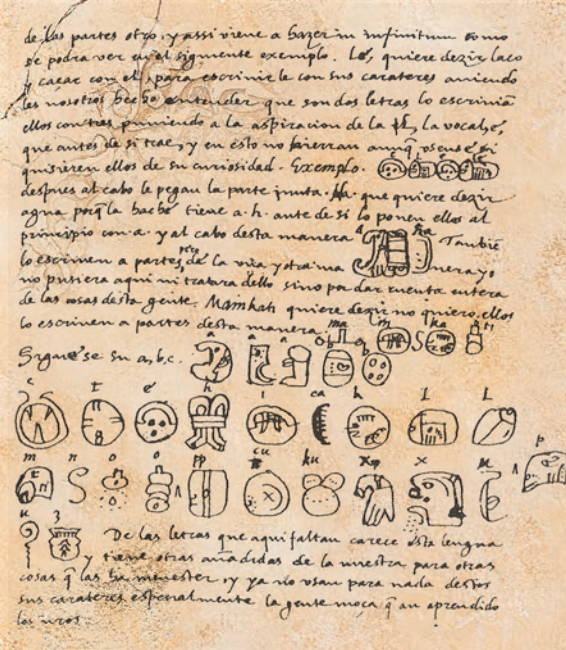 de las partes otro, y assi viene a hazer in infinitum como
se podra ver en el siguiente exemplo. Lé, quiere dezir laço
y caçar con el, para escrivirle con sus carateres aviendo
les nosotros hecho entender que son dos letras lo escrivian
ellos con tres puniendo a la aspiracion de la l, la vocal, é,
que antes de si trae, y en esto no hierran aunq̃ osense, si
quisieren ellos de su curiosidad. Exemplo. e l e lé
despues al cabo le pegan la parte junta. Ha. que quiere dezir
agua porq̃ la haché tiene a.h. ante de si lo ponen ellos al
principio con a. y al cabo desta manera a ha Tambiē
lo escriven a partes, pero de la una y otra ma nera yo
no pusiera aqui ni tratara dello sino por dar cuenta entera
de las cosas desta gente. Mainkati quiere dezir no quiero, ellos
lo escriven a partes desta manera. ma i n ka ti
Siguese su a, b, c. a a a b b
c t é h i ca k l l
m n o o pp cu ku x x u p
u z De las letras que aqui faltan carece esta lengua
y tiene otras añadidas de la nuestra para otras
cosas q̃ las ha menester, y ya no usan para nada destos
sus carateres especialmente la gente moça q̃ an aprendido
los nros